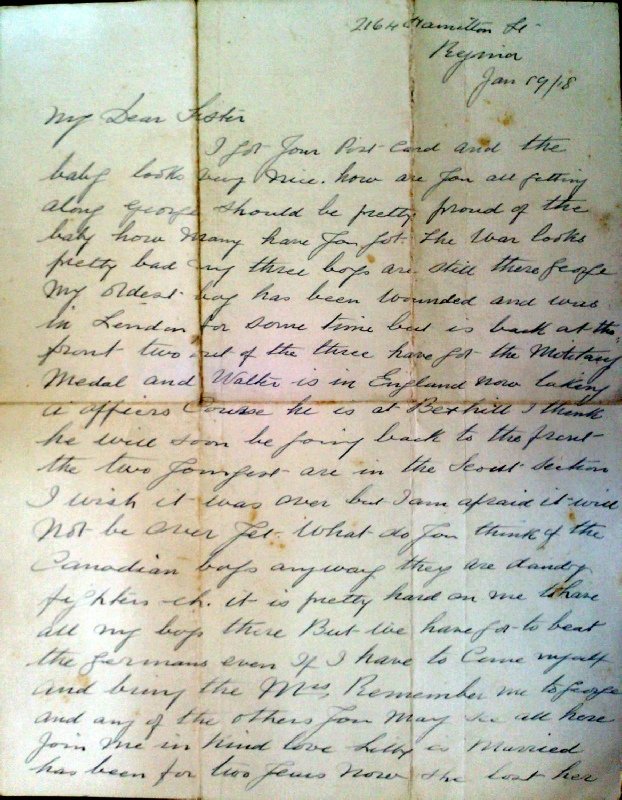 2164 Hamilton St
Regina
Jan 19/18
My Dear Sister
I got your Post Card and the
baby looks very nice. how are you all getting
along George should be pretty proud of the
baby how many have you got. the War looks
pretty bad my three boys are still there George
My oldest boy has been wounded and was
in London for some time but is back at the
front two out of the three have got the Military
Medal and Walter is in England now taking
a officers Course he is at Bexhill I think
he will soon be going back to the front
the two youngest are in the Scout Section
I wish it was over but I am afraid it will
Not be over yet. What do you think of the
Canadian boys anyway they are dandy
fighters eh. it is pretty hard on me to have
all my boys there But we have got to beat
the germans even If I have to Come myself
and bring the Mrs, Remember me to George
and any of the others you May see all here
Join Me in Kind love is Married
has been for two years now she lost her